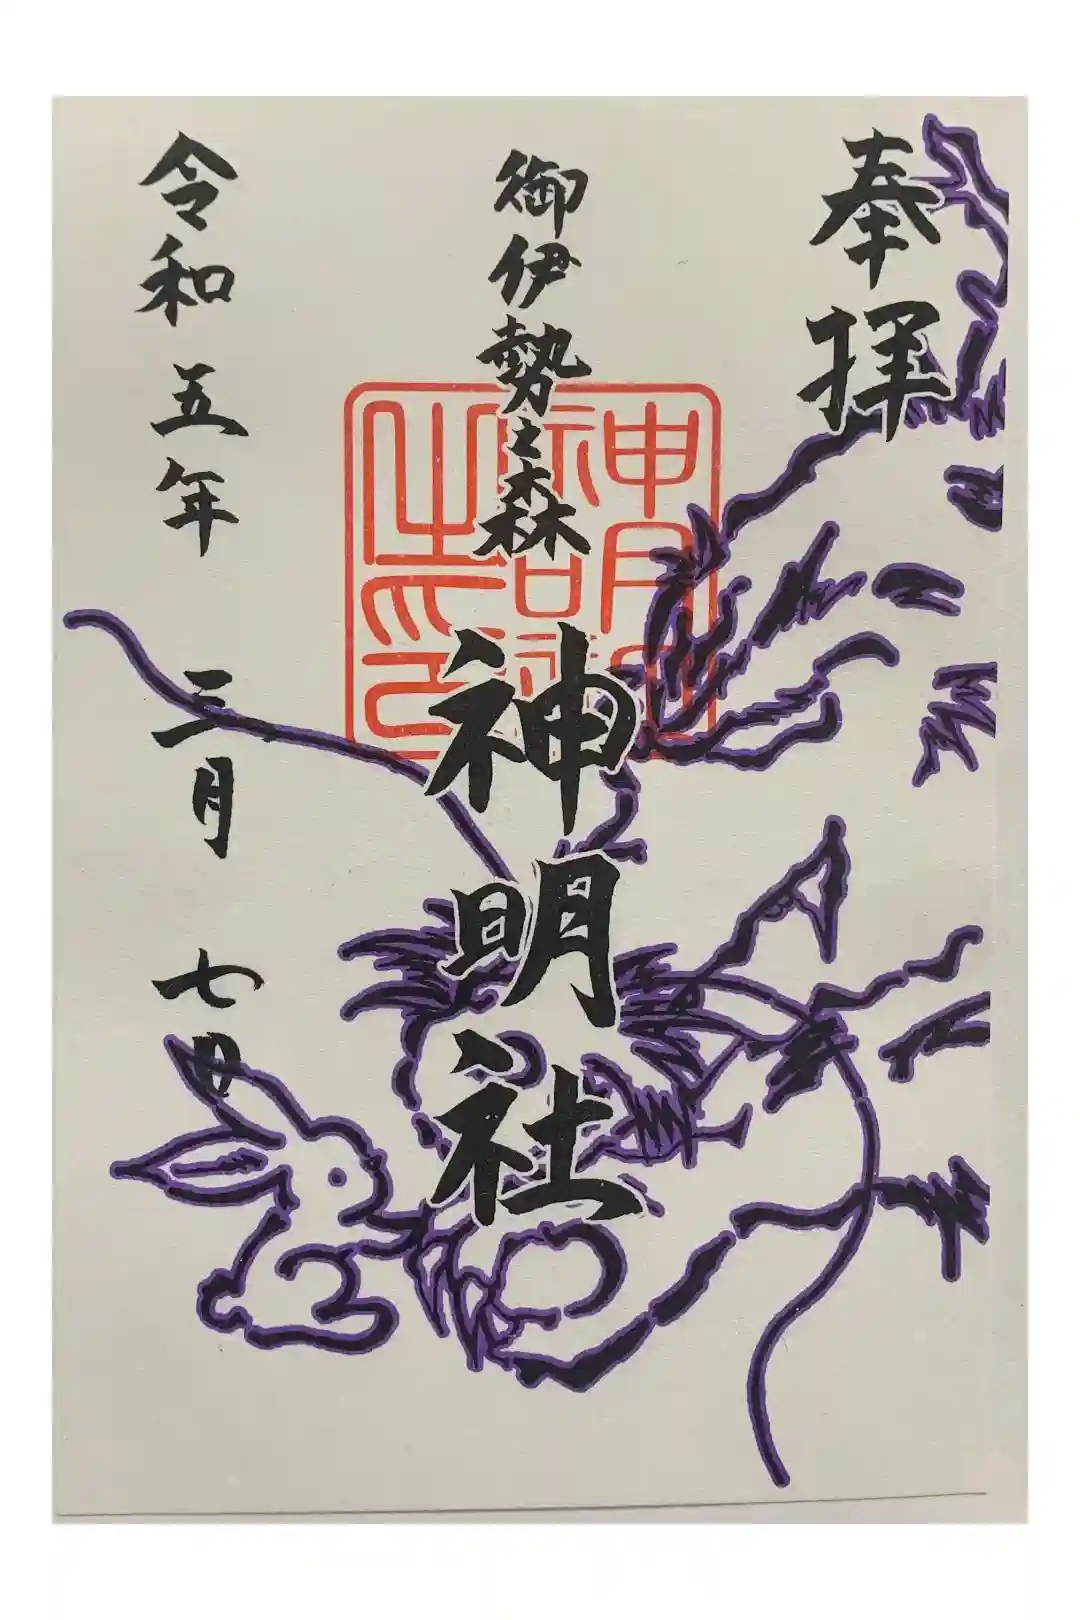 奉拝
御伊勢之森
神明社
令和五年 三月 七日